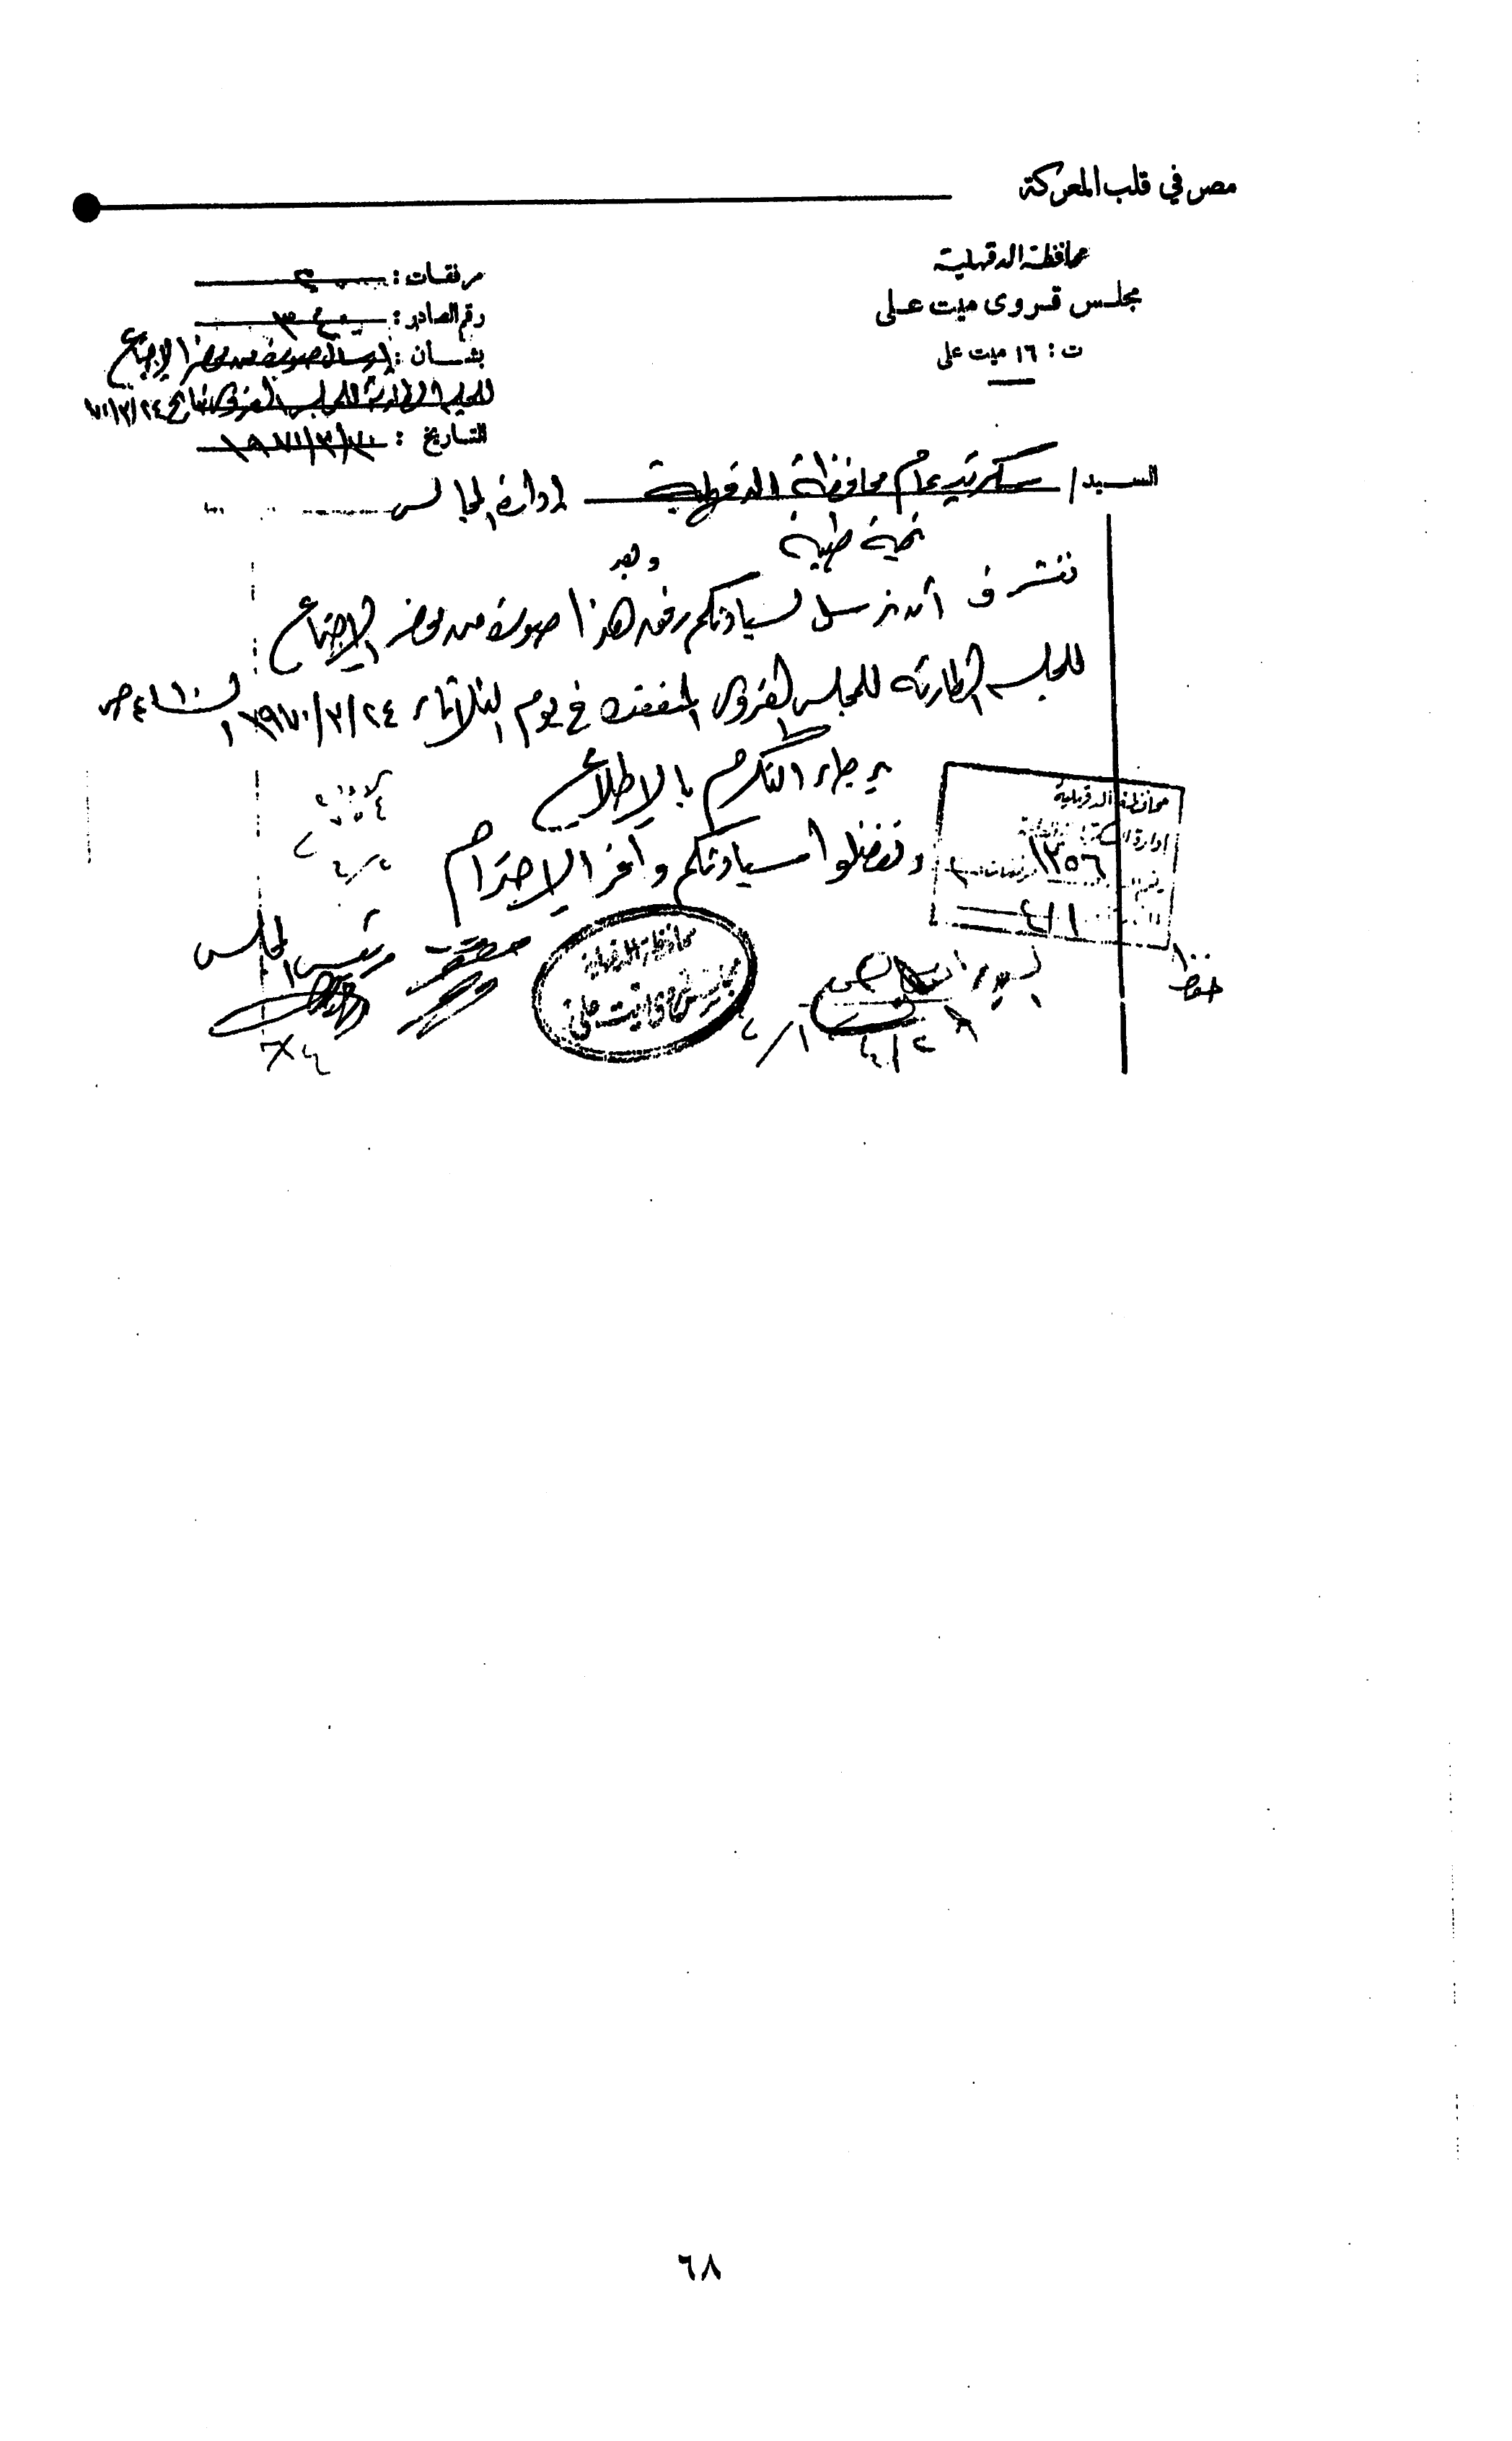 مصر في قلب المعركة
محافظة الدقهلية
مجلس قروى ميت على
ت : ١٦ ميت على
مرفقات :
رقم الصادر : ٣٤٠
بشأن : إرسال صورة من محضر الإجتماع
للجلسة الطارئة للمجلس القروى بتاريخ ٧٠/٣/٢٤
التاريخ :
السيد / سكرتير عام محافظة الدقهلية إدارة المجالس
تحية طيبة وبعد
نتشرف أن نرسل لسيادتكم رفق هذا صورة من محضر الإجتماع
للجلسة الطارئة للمجلس القروى المنعقدة فى يوم الثلاثاء ١٩٧٠/٣/٢٤
برجاء التكرم بالإطلاع
وتفضلوا سيادتكم وافر الإحترام
محافظة الدقهلية
١٢٥٦
٤/١
رئيس المجلس
محافظة الدقهلية
مجلس قروى ميت على
حفظ
٦٨